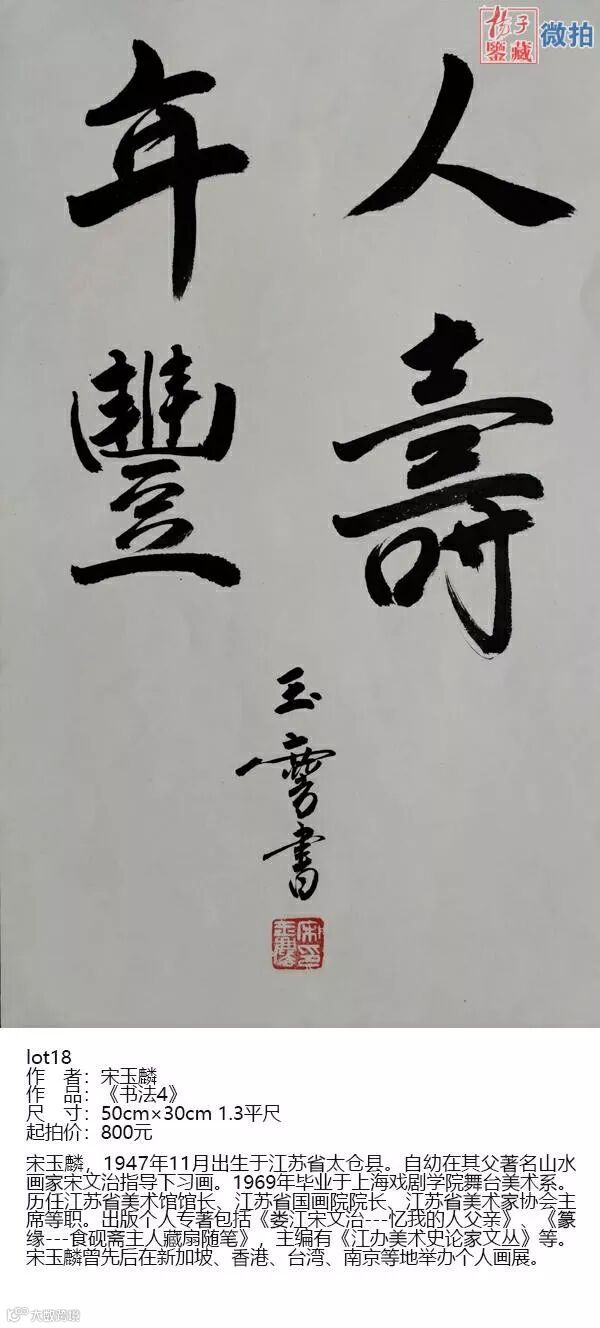 揚子
鑒藏
微拍
人壽
年豐
玉麐書
lot18
作　者：宋玉麟
作　品：《书法4》
尺　寸：50cm×30cm 1.3平尺
起拍价：800元
宋玉麟，1947年11月出生于江苏省太仓县。自幼在其父著名山水
画家宋文治指导下习画。1969年毕业于上海戏剧学院舞台美术系。
历任江苏省美术馆馆长、江苏省国画院院长、江苏省美术家协会主
席等职。出版个人专著包括《娄江宋文治---忆我的人父亲》、《篆
缘---食砚斋主人藏扇随笔》，主编有《江办美术史论家文丛》等。
宋玉麟曾先后在新加坡、香港、台湾、南京等地举办个人画展。
大数跨境